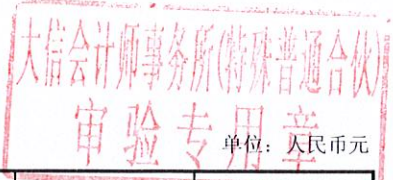 大信会计师事务所(特殊普通合伙)
审验专用章
单位：人民币元